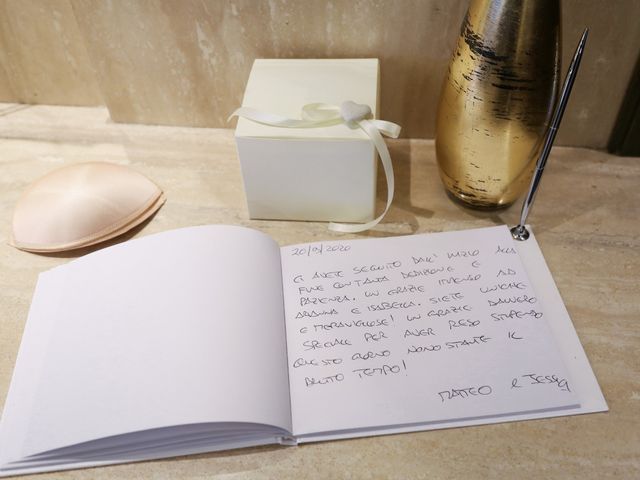 20/9/2020
CI AVETE SEGUITO DALL' INIZIO ALLA
FINE CON TANTA DEDIZIONE E
PAZIENZA. UN GRAZIE IMMENSO AD
ARIANNA E ISABELLA. SIETE UNICHE
E MERAVIGLIOSE! UN GRAZIE DAVVERO
SPECIALE PER AVER RESO STUPENDO
QUESTO GIORNO NONOSTANTE IL
BRUTTO TEMPO!
MATTEO e JESSICA